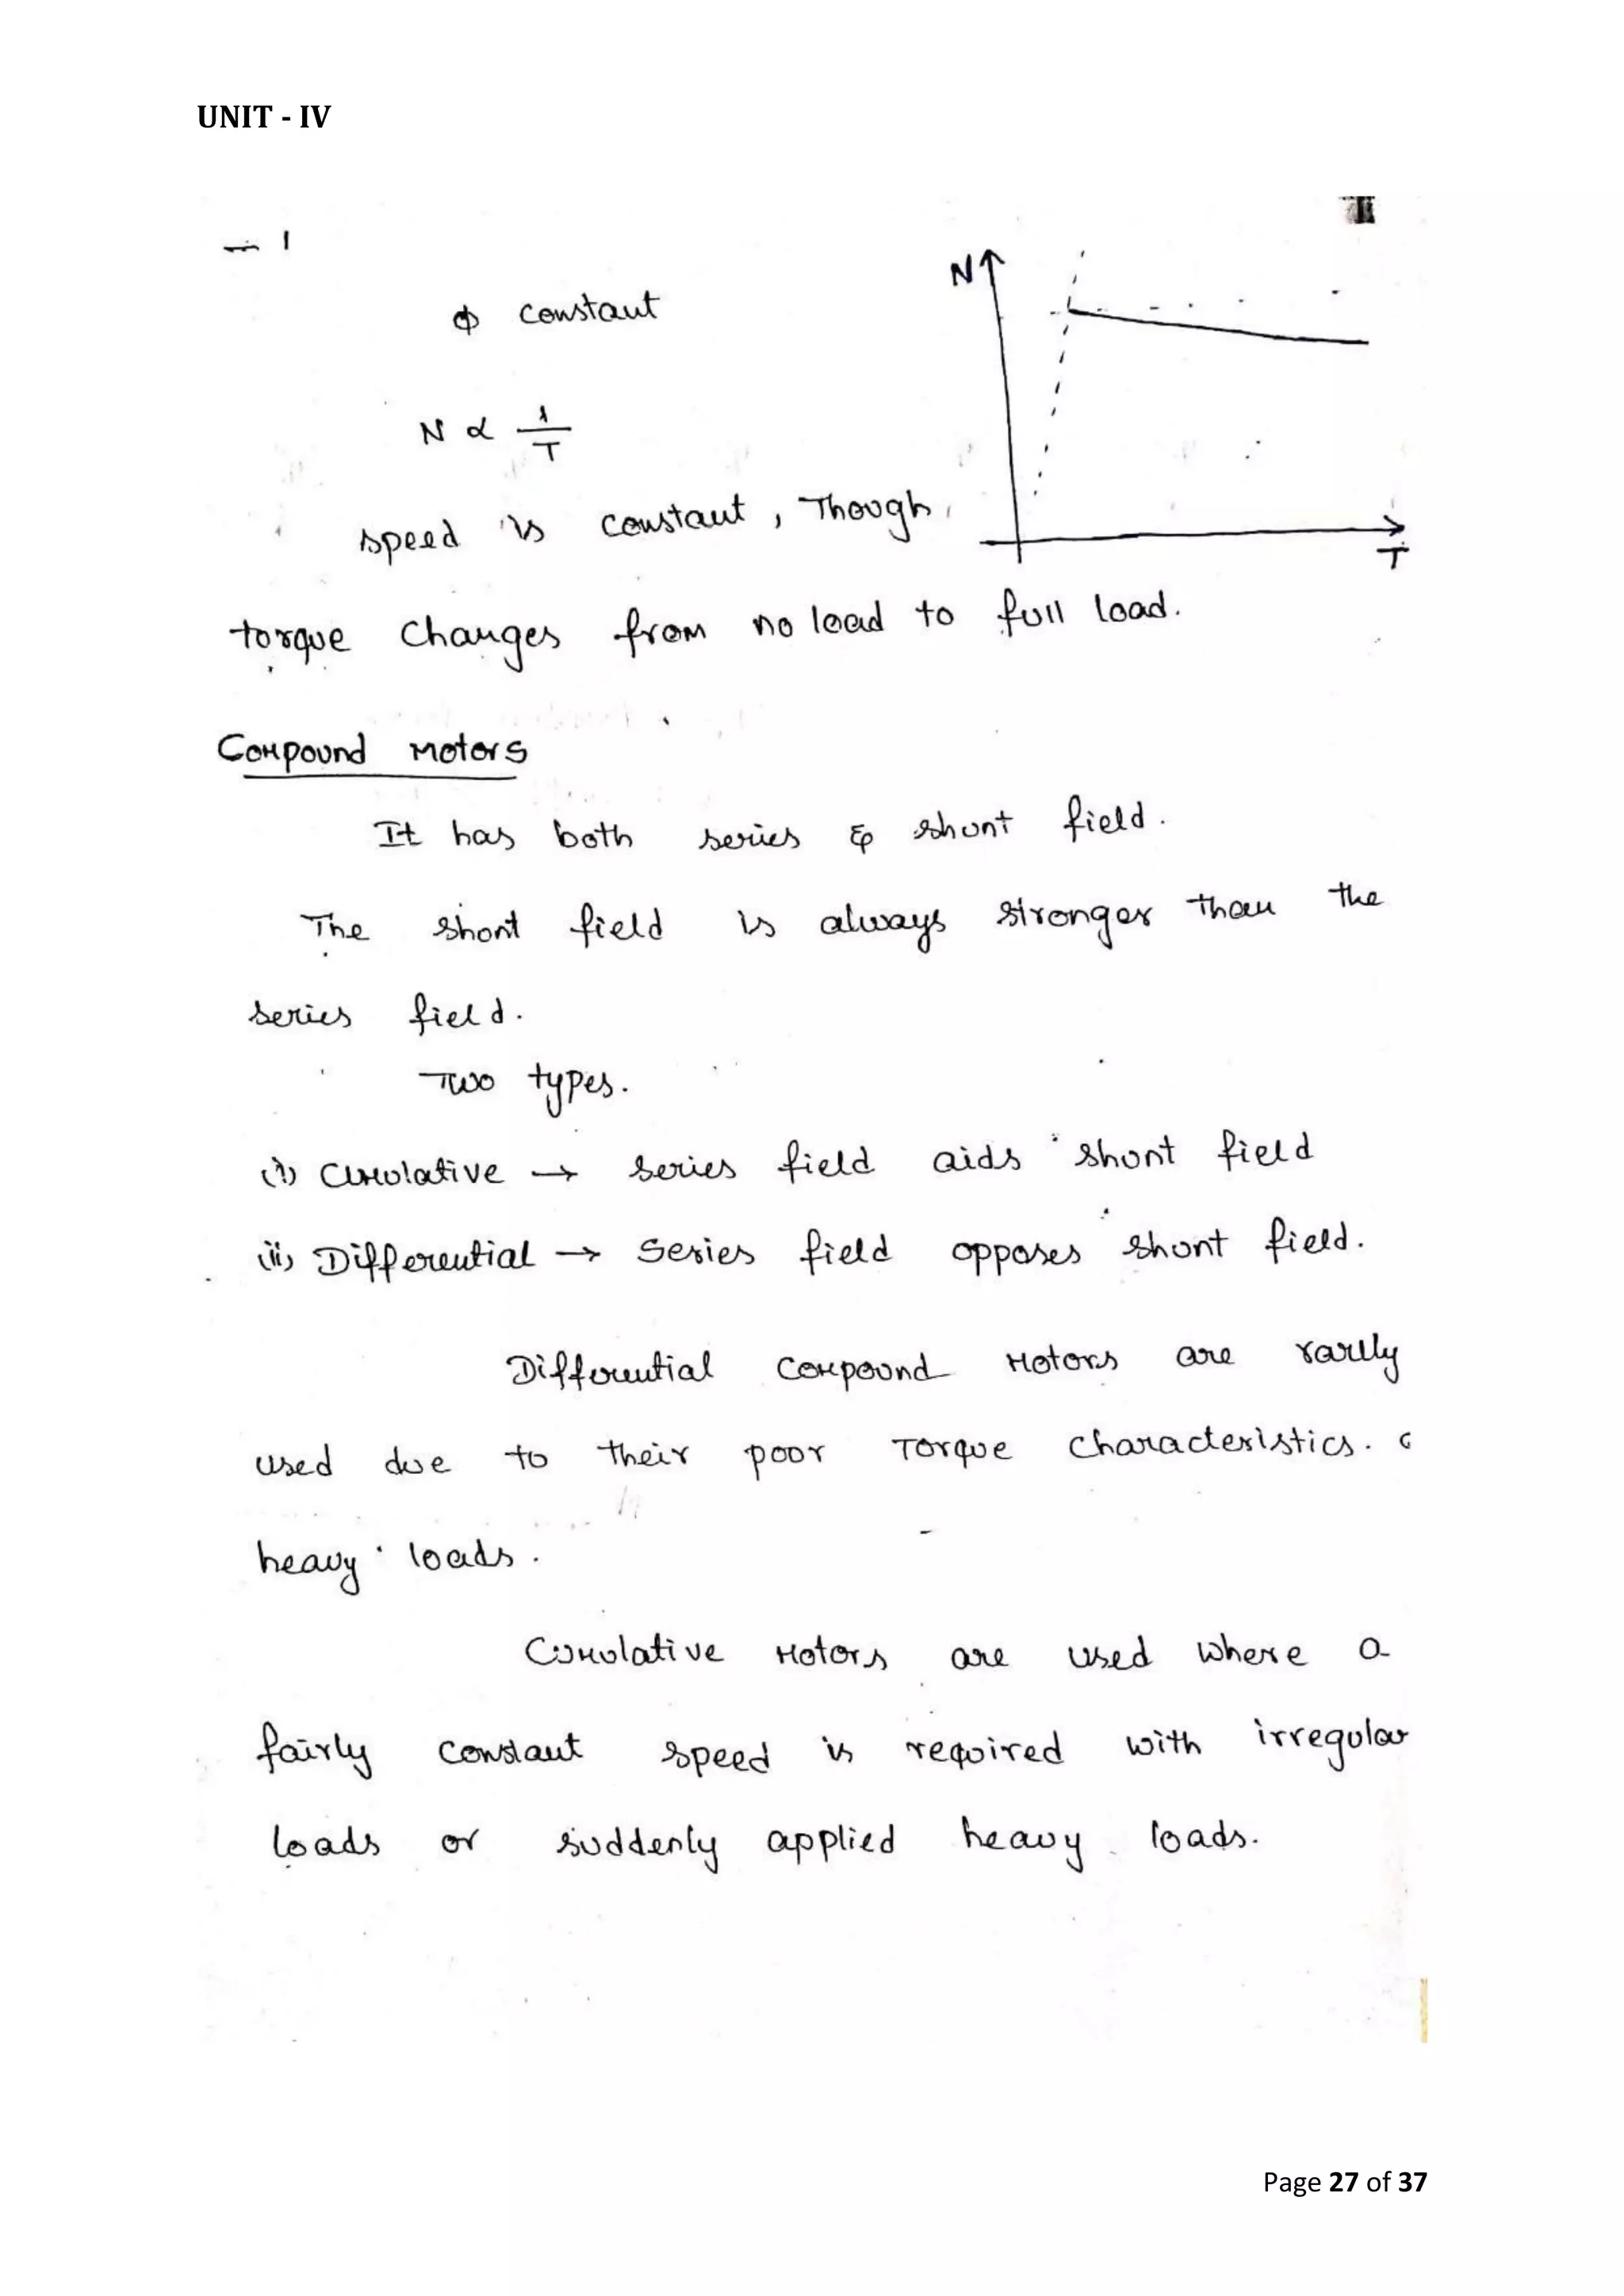 UNIT - IV
N
ϕ constant
N ∝ 1/T
speed is constant, Though
T
torque changes from no load to full load.
Compound Motors
It has both series & shunt field.
The shunt field is always stronger than the
series field.
Two types.
(i) Cumulative → series field aids shunt field
(ii) Differential → Series field opposes shunt field.
Differential compound Motors are rarely
used due to their poor Torque characteristics.
heavy loads.
Cumulative Motors are used where a
fairly constant speed is required with irregular
loads or suddenly applied heavy loads.
Page 27 of 37